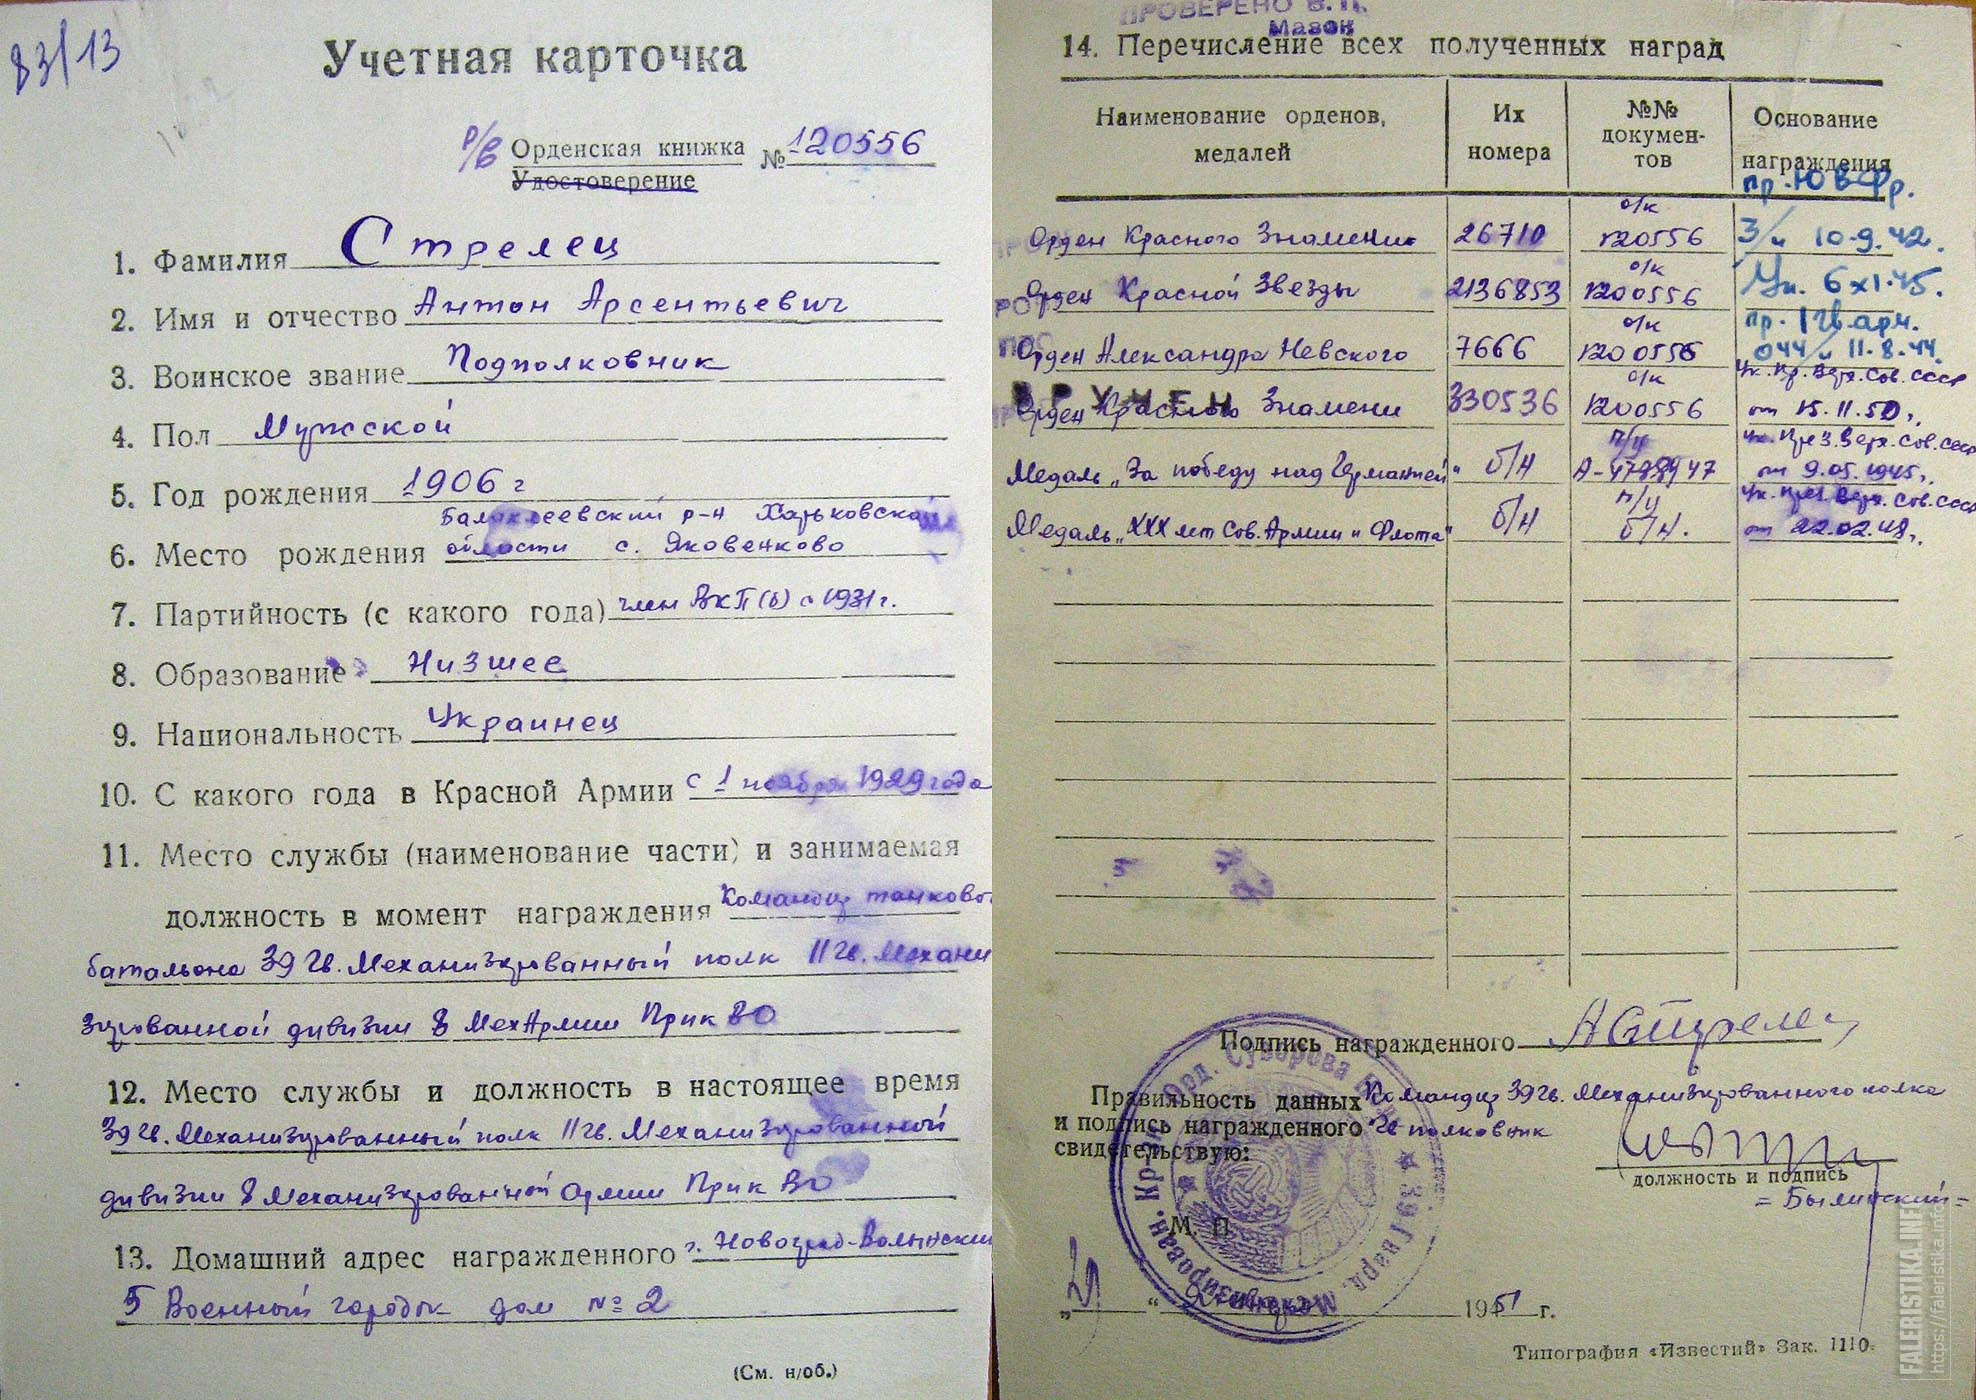 83/13
Учетная карточка
р/в Орденская книжка № 120556
Удостоверение
1. Фамилия Стрелец
2. Имя и отчество Антон Арсентьевич
3. Воинское звание Подполковник
4. Пол Мужской
5. Год рождения 1906 г
Балаклеевский р-н Харьковская
6. Место рождения области с. Яковенково
7. Партийность (с какого года) член ВКП(б) с 1931 г.
8. Образование Низшее
9. Национальность Украинец
10. С какого года в Красной Армии с 1 ноября 1929 года
11. Место службы (наименование части) и занимаемая
должность в момент награждения Командир танково
батальона 39 Гв. Механизированный полк 11 Гв. Механи
зированной дивизии 8 МехАрмии ПрикВО
12. Место службы и должность в настоящее время
39 Гв. Механизированный полк 11 Гв. Механизированной
дивизии 8 Механизированной Армии ПрикВО
13. Домашний адрес награжденного г. Новоград-Волынский
5 Военный городок дом № 2
(См. н/об.)
ПРОВЕРЕНО В.П.
Мазок
14. Перечисление всех полученных наград
Наименование орденов, медалей
Их номера
№№ документов
Основание награждения
пр. ЮВФр.
Орден Красного Знамени 26710 о/к 120556 3/н 10.9.42.
Орден Красной Звезды 2136853 о/к 1200556 Ук. 6 XI.45.
пр. 1 Гв.арм.
Орден Александра Невского 7666 о/к 1200556 044/н 11.8.44.
ВРУЧЕН
Ук. Пр. Верх. Сов. СССР
Орден Красного Знамени 330536 о/к 1200556 от 15.11.50г.
Ук. През. Верх. Сов. СССР
Медаль „За победу над Германией" б/н п/у А-4798947 от 9.05.1945г.
Ук. През. Верх. Сов. СССР
Медаль „XXX лет Сов. Армии и Флота" б/н п/у б/н. от 22.02.48г.
Подпись награжденного АСтрелец
Правильность данных и подпись награжденного свидетельствую:
Командир 39 Гв. Механизированного полка
Гв полковник
должность и подпись
=Былинский=
М. П.
1951 г.
Типография «Известий» Зак. 1110.
FALERISTIKA.INFO
https://faleristika.info